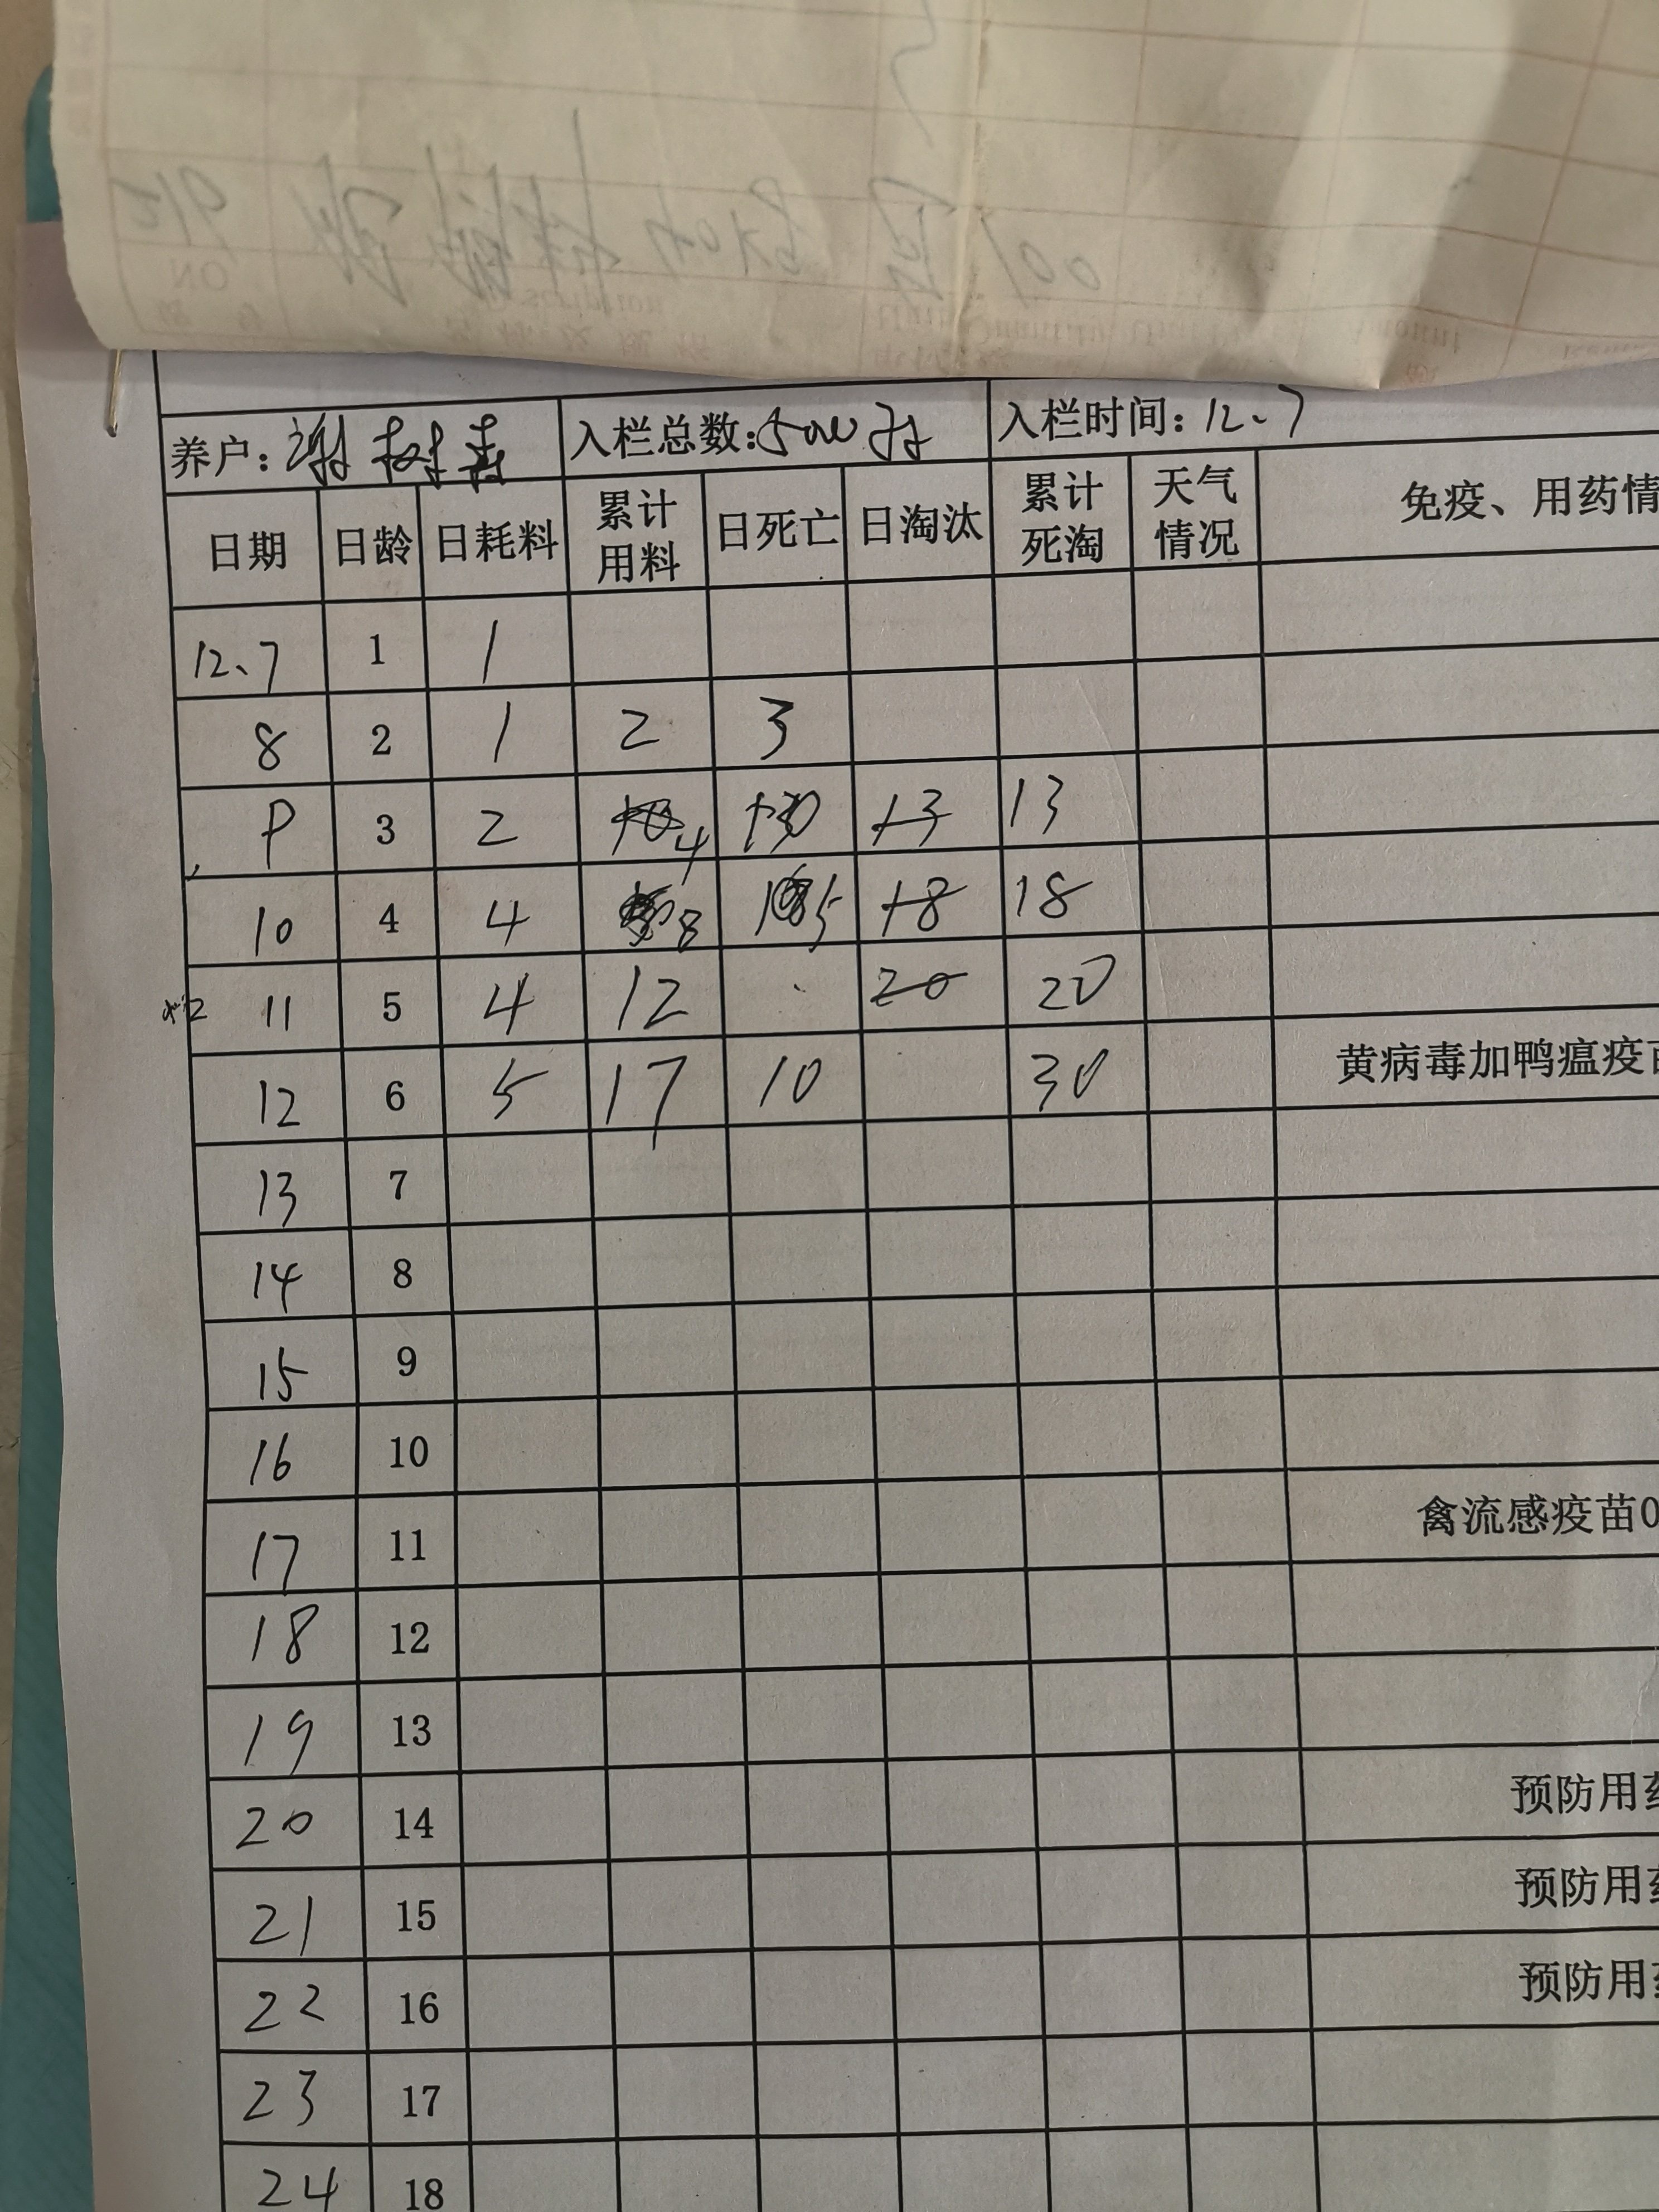 养户：谢树 入栏总数：5000羽 入栏时间：12.7
日期 日龄 日耗料 累计用料 日死亡 日淘汰 累计死淘 天气情况 免疫、用药情
12.7 1 1
8 2 1 2 3
9 3 2 4 13 13
10 4 4 8 5 18 18
11 5 4 12 20 20
12 6 5 17 10 30 黄病毒加鸭瘟疫苗
13 7
14 8
15 9
16 10
17 11 禽流感疫苗0
18 12
19 13
20 14 预防用药
21 15 预防用药
22 16 预防用药
23 17
24 18